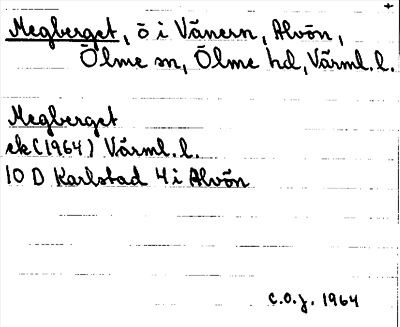 Megberget, ö i Vänern, Alvön,
Ölme sn, Ölme hd, Värml. l.
Megberget
ek (1964) Värml. l.
10 D Karlstad 4 i Alvön
C.O.J. 1964